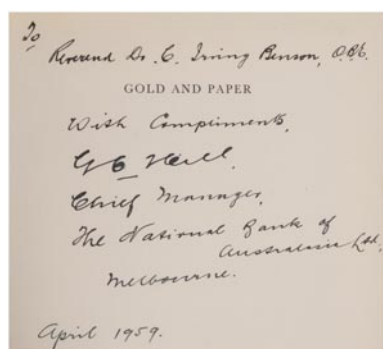 To
Reverend Dr. C. Irving Benson, O.B.E.
GOLD AND PAPER
With Compliments,
Chief Manager,
The National Bank of
Australasia Ltd.
Melbourne.
April 1959.